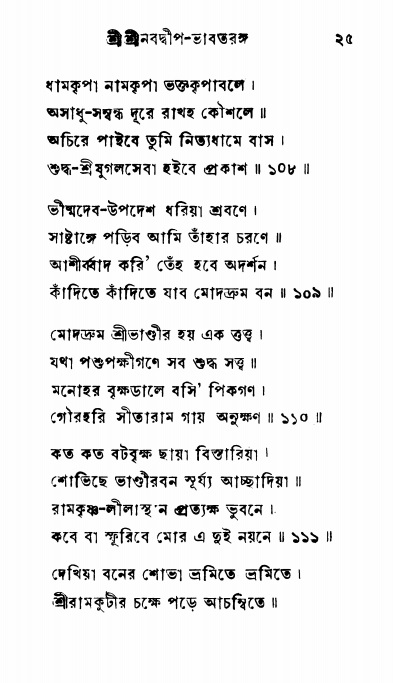 শ্রীশ্রীনবদ্বীপ-ভাবতরঙ্গ ২৫
ধামকৃপা নামকৃপা ভক্তকৃপাবলে ।
অসাধু-সম্বন্ধ দূরে রাখহ কৌশলে ॥
অচিরে পাইবে তুমি নিত্যধামে বাস ।
শুদ্ধ-শ্রীযুগলসেবা হইবে প্রকাশ ॥ ১০৮ ॥
ভীষ্মদেব-উপদেশ ধরিয়া শ্রবণে ।
সাষ্টাঙ্গে পড়িব আমি তাঁহার চরণে ॥
আশীর্ব্বাদ করি' তেঁহ হবে অদর্শন ।
কাঁদিতে কাঁদিতে যাব মোদদ্রুম বন ॥ ১০৯ ॥
মোদদ্রুম শ্রীভাণ্ডীর হয় এক তত্ত্ব ।
যথা পশুপক্ষীগণে সব শুদ্ধ সত্ত্ব ॥
মনোহর বৃক্ষডালে বসি' পিকগণ ।
গৌরহরি সীতারাম গায় অনুক্ষণ ॥ ১১০ ॥
কত কত বটবৃক্ষ ছায়া বিস্তারিয়া ।
শোভিছে ভাণ্ডীরবন সূর্য্য আচ্ছাদিয়া ॥
রামকৃষ্ণ-লীলাস্থান প্রত্যক্ষ ভুবনে ।
কবে বা স্ফূরিবে মোর এ দুই নয়নে ॥ ১১১ ॥
দেখিয়া বনের শোভা ভ্রমিতে ভ্রমিতে ।
শ্রীরামকুটীর চক্ষে পড়ে আচম্বিতে ॥